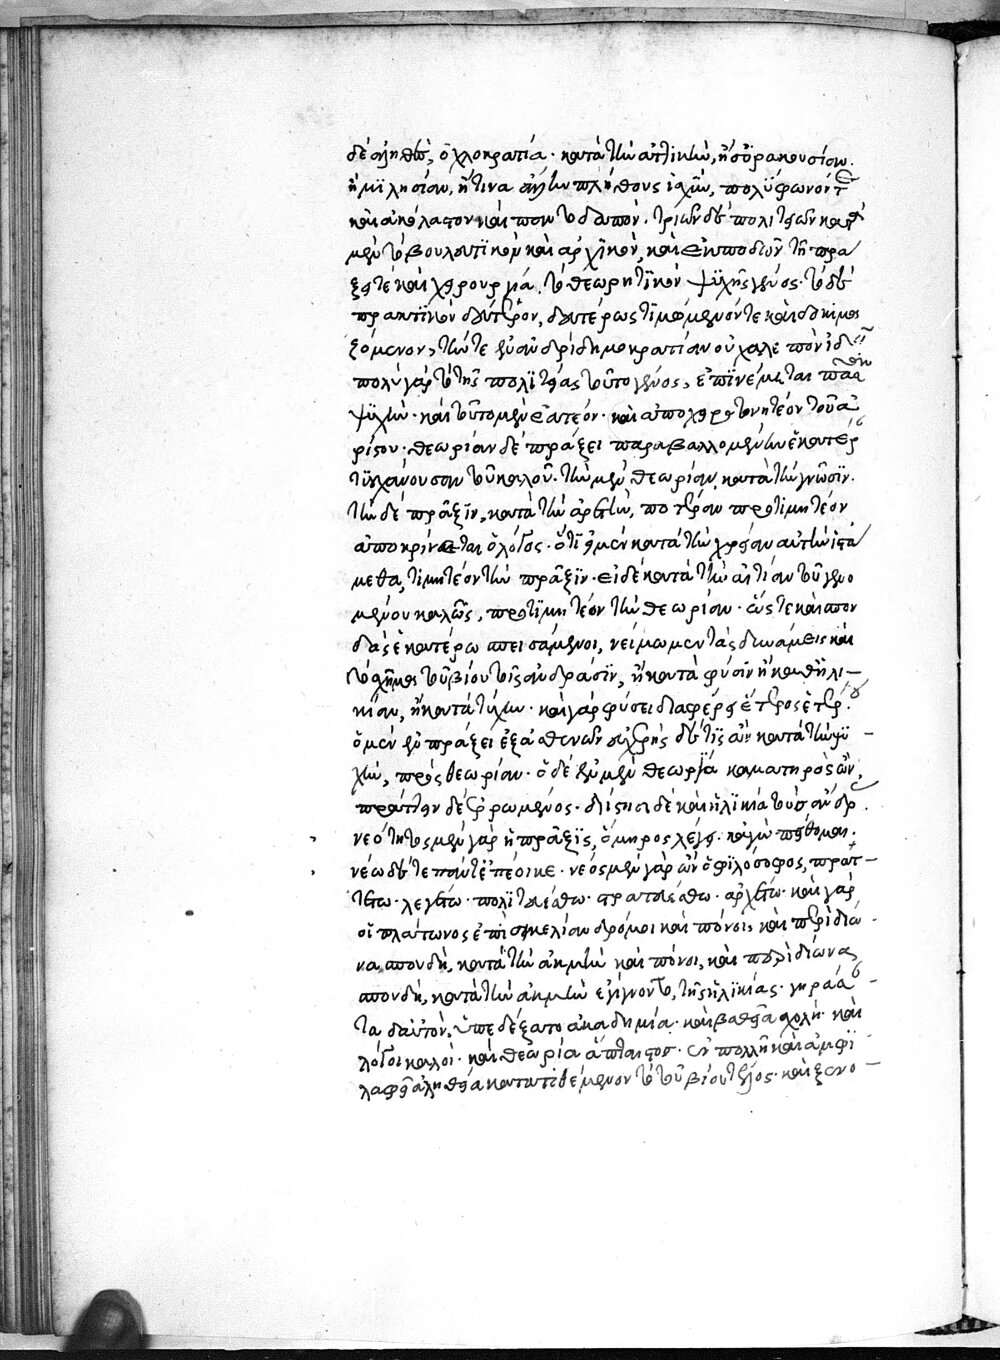 δὲ ἀληθὲς, ὀχλοκρατία· κατὰ τὴν ἀττικὴν, ἢ συρακουσίαν.
ἢ μιλησίαν, ἤ τινα ἄλλην πλήθους ἰσχὺν, πολύφωνόν τε
καὶ ἀκόλαστον καὶ παντοδαπόν. τριῶν δὲ πολιτειῶν κατὰ
μὲν τὸ βουλευτικὸν καὶ ἀρχικὸν, καὶ ἐν σποδιῶν τῇ πρα
ξει τε καὶ χειρουργία, τὸ θεωρητικὸν ψυχῆς γένος· τὸ δὲ
πρακτικὸν δεύτερον, δευτέρως τιμώμενόν τε καὶ δοκιμα
ζόμενον, τήν τε ἐν ἀνδρὶ δημοκρατίαν οὐ χαλεπὸν ἰδεῖν
πολὺ γὰρ τὸ τῆς πολιτείας τοῦτο γένος, ἐπινέμεται πᾶσαν
ψυχήν· καὶ τοῦτο μὲν ἐατέον· καὶ ἀποχειροτονητέον τοῦ ἀ
ρίστου· θεωρίαν δὲ πράξει παραβαλλομένην ἑκατέρ
τυγχάνουσαν τοῦ καλοῦ. τὴν μὲν θεωρίαν, κατὰ τὴν γνῶσιν.
τὴν δὲ πρᾶξιν, κατὰ τὴν ἀρετὴν, ποτέραν προτιμητέον
ἀποκρίνεται ὁ λόγος· ὅτι εἰ μὲν κατὰ τὴν χρείαν αὐτὴν ἱστά
μεθα, τιμητέον τὴν πρᾶξιν· εἰ δὲ κατὰ τὴν αἰτίαν τοῦ γενο
μένου καλῶς, προτιμητέον τὴν θεωρίαν· ὥστε καὶ σπον
δὰς ἑκατέρω σπεισάμενοι, νείμωμεν τὰς δυνάμεις καὶ
τὸ σχῆμα τοῦ βίου τοῖς ἀνδράσιν, ἢ κατὰ φύσιν ἢ καθ ἡλι-
κίαν, ἢ κατὰ τύχην· καὶ γὰρ φύσει διαφέρει ἕτερος ἑτέρου
ὁ μὲν ἐν πράξει ἐξασθενῶν εὐχερὴς δέ τις ὢν κατὰ τὴν ψυ-
χὴν, πρὸς θεωρίαν· ὁ δὲ ἐν μὲν θεωρία καματηρὸς ὢν,
πράττειν δὲ ἐρρωμένος· διΐστησι δὲ καὶ ἡλικία τοὺς ἄνδρ.
νεότητος μὲν γὰρ ἡ πρᾶξις, ὅμηρος λέγει· κἀγὼ πείθομαι.
νέω δέ τε πάντ ἐπέοικε· νέος μὲν γὰρ ὢν ὁ φιλόσοφος, πρατ-
τέτω· λεγέτω· πολιτευέσθω· στρατευέσθω· ἀρχέτω· καὶ γὰρ
οἱ πλάτωνος ἐπὶ σικελίαν δρόμοι καὶ πόνοι, καὶ περὶ δίω
να σπουδὴ, κατὰ τὴν ἀκμὴν καὶ πόνοι, καὶ περὶ δίωνα
σπουδὴ, κατὰ τὴν ἀκμὴν ἐγίγνοντο, τῆς ἡλικίας· γηράσ-
τα δ αὐτὸν, ὑπεδέξατο ἀκαδημία· καὶ βαθεῖα σχολὴ· καὶ
λόγοι καλοὶ· καὶ θεωρία ἄπταιστος· ἐν πολλῆ καὶ ἀμφι
λαφεῖ ἀληθεία κατατιθέμενον τὸ τοῦ βίου τέλος· καὶ ξενο-